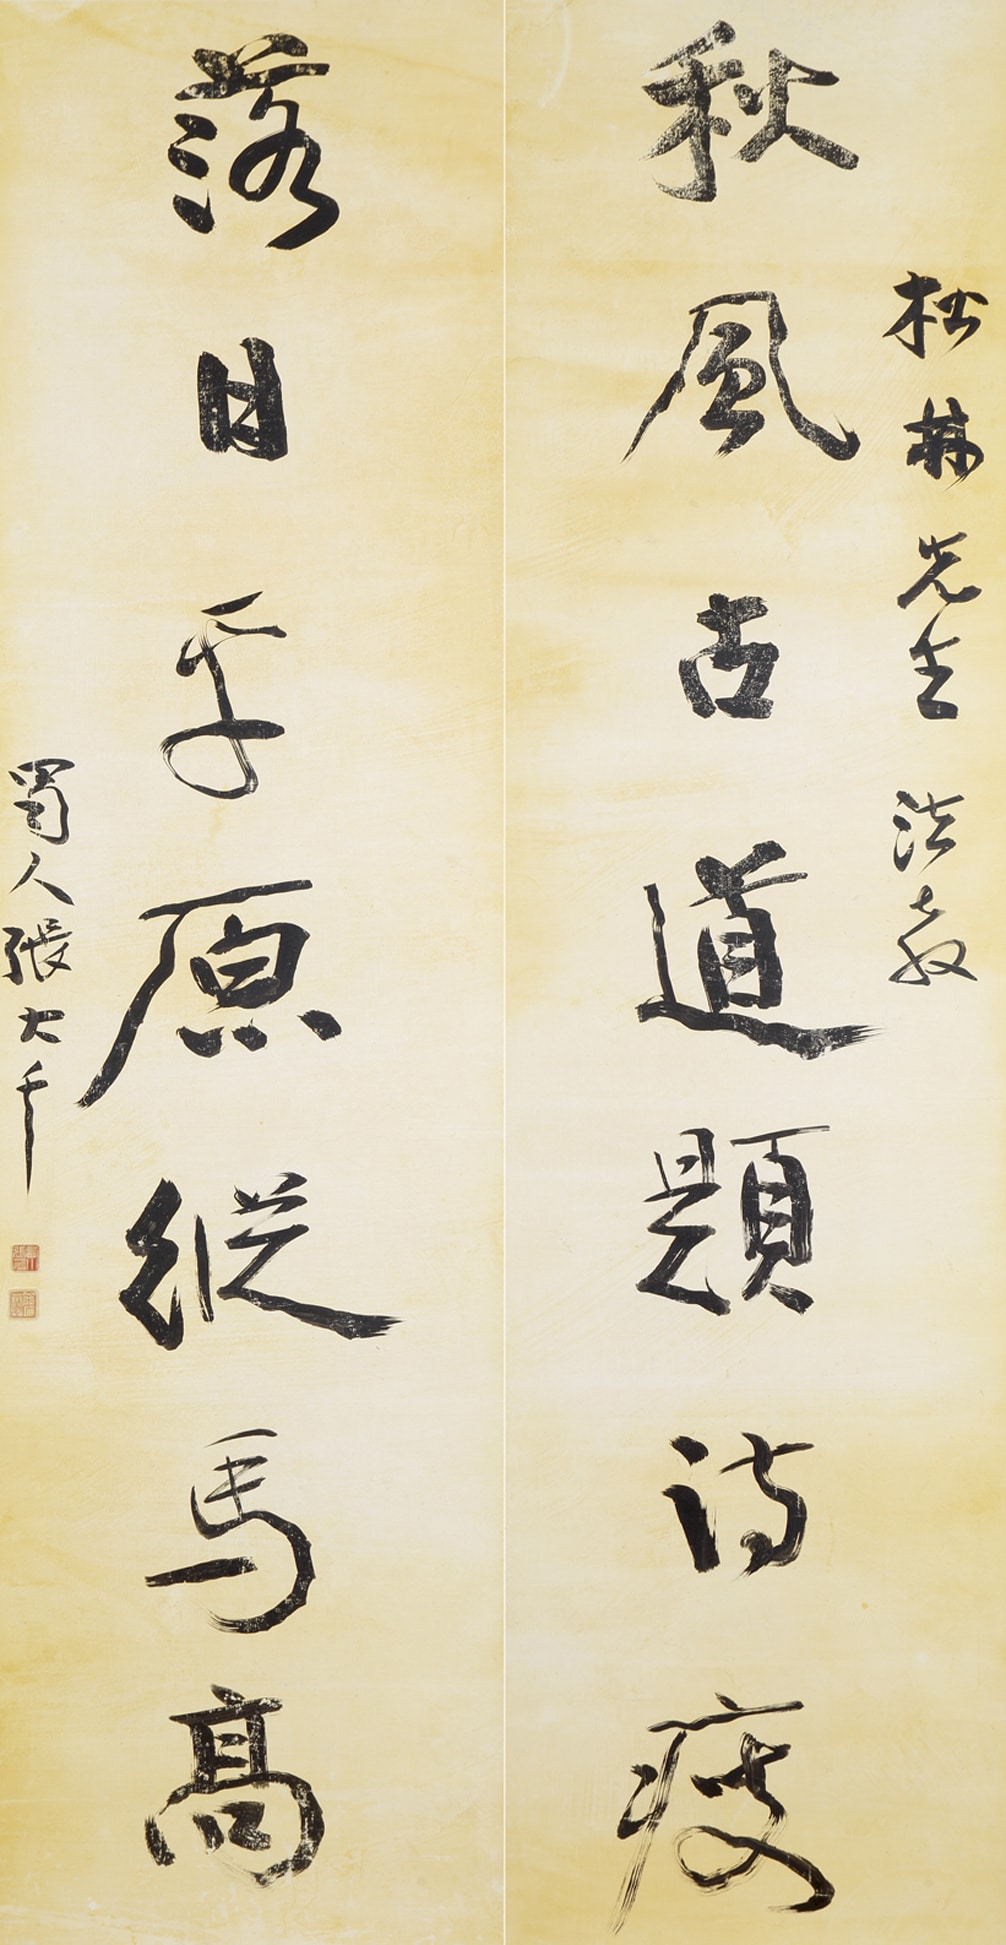 松赫先生法教
秋風古道題詩瘦
落日平原縱馬高
蜀人張大千